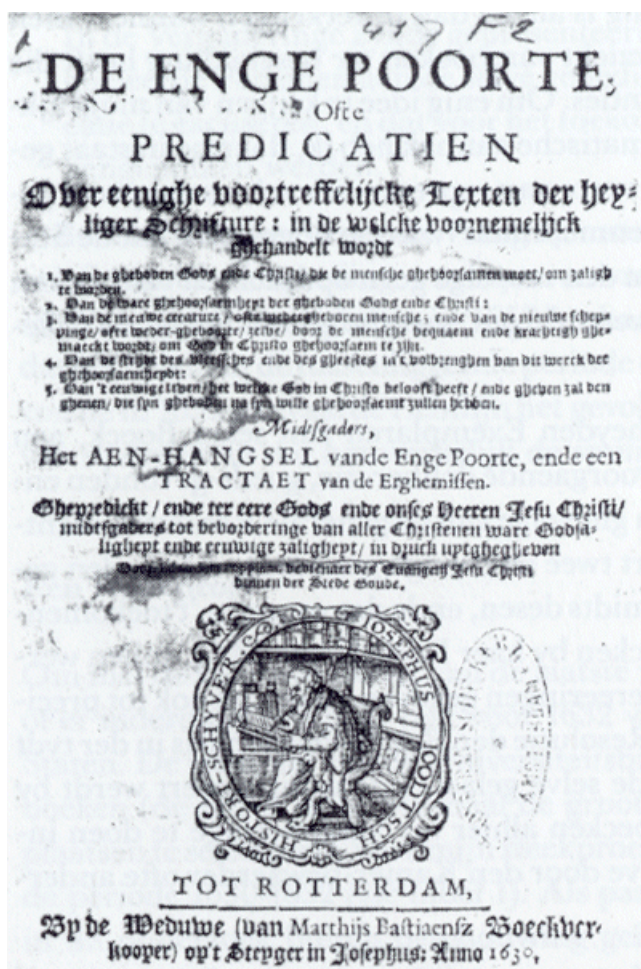 417 F 2
DE ENGE POORTE,
Ofte
PREDICATIEN
Over eenighe voortreffelijcke Texten der hey-
liger Schrifture: in de welcke voornemelijck
Ghehandelt wordt
1. Van de gheboden Gods ende Christi/ die de mensche ghehoorsamen moet/ om zaligh
te worden.
2. Van de ware ghehoorsaemheyt der gheboden Gods ende Christi:
3. Van de nieuwe creature/ ofte wedergheboren mensche; ende van de nieuwe schep-
pinge/ ofte weder-gheboorte/ door de mensche bequaem ende krachtigh ghe-
maeckt wordt/ om God in Christo ghehoorsaem te zijn.
4. Van de strijdt des vleesches ende des gheestes in't volbrenghen van dit werck der
ghehoorsaemheydt:
5. Van 't eeuwige leven/ het welcke God in Christo belooft heeft/ ende gheven zal den
ghenen/ die sijn gheboden na sijn wille ghehoorsaemt zullen hebben.
Midtsgaders,
Het AEN-HANGSEL vande Enge Poorte, ende een
TRACTAET van de Erghernissen.
Ghepredickt/ ende ter eere Gods ende onses Heeren Jesu Christi/
midtsgaders tot bevorderinge van aller Christenen ware Godsa-
ligheyt ende eeuwige zaligheyt/ in druck uytghegheven
Door bedienaer des Euangelij Jesu Christi
binnen der Stede Goude.
JOSEPHUS JOODTSCH HISTORI-SCHYVER
TOT ROTTERDAM,
By de Weduwe (van Matthijs Bastiaensz Boeckver-
kooper) op't Steyger in Josephus: Anno 1630,